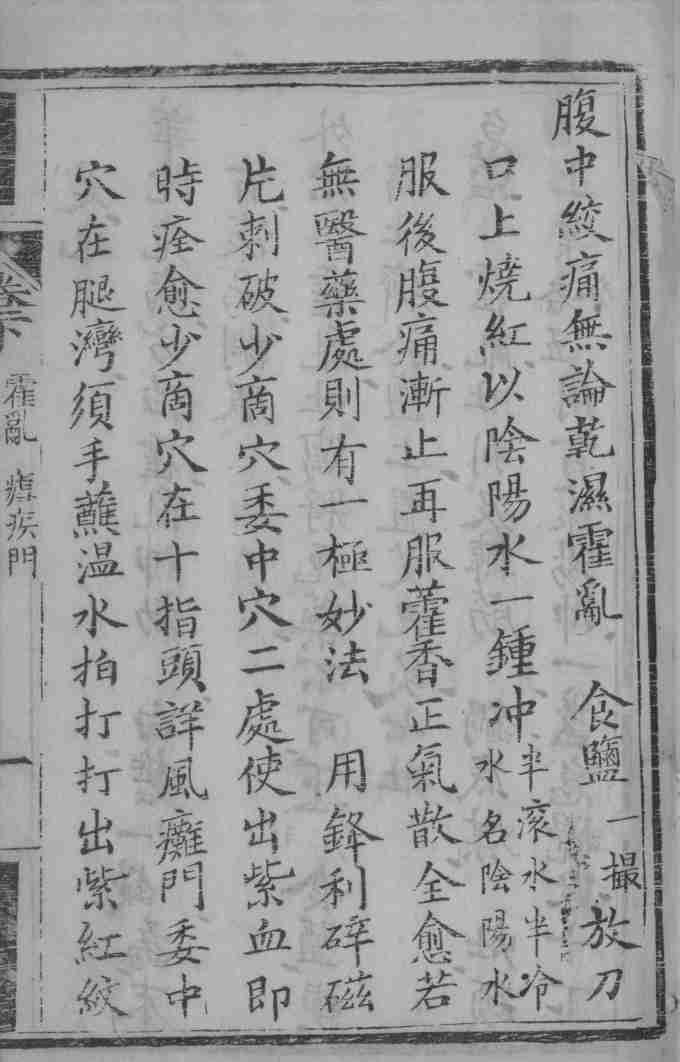 腹中絞痛無論乾濕霍亂 食鹽一撮放刀
口上燒紅以陰陽水一鍾冲半滚水半冷水名陰陽水
服後腹痛漸止再服藿香正氣散全愈若
無醫藥處則有一極妙法 用鋒利碎磁
片刺破少商穴委中穴二處使出紫血即
時痊愈少商穴在十指頭詳風癱門委中
穴在腿灣須手蘸温水拍打打出紫紅紋
卷下 霍亂 瘧疾門 一